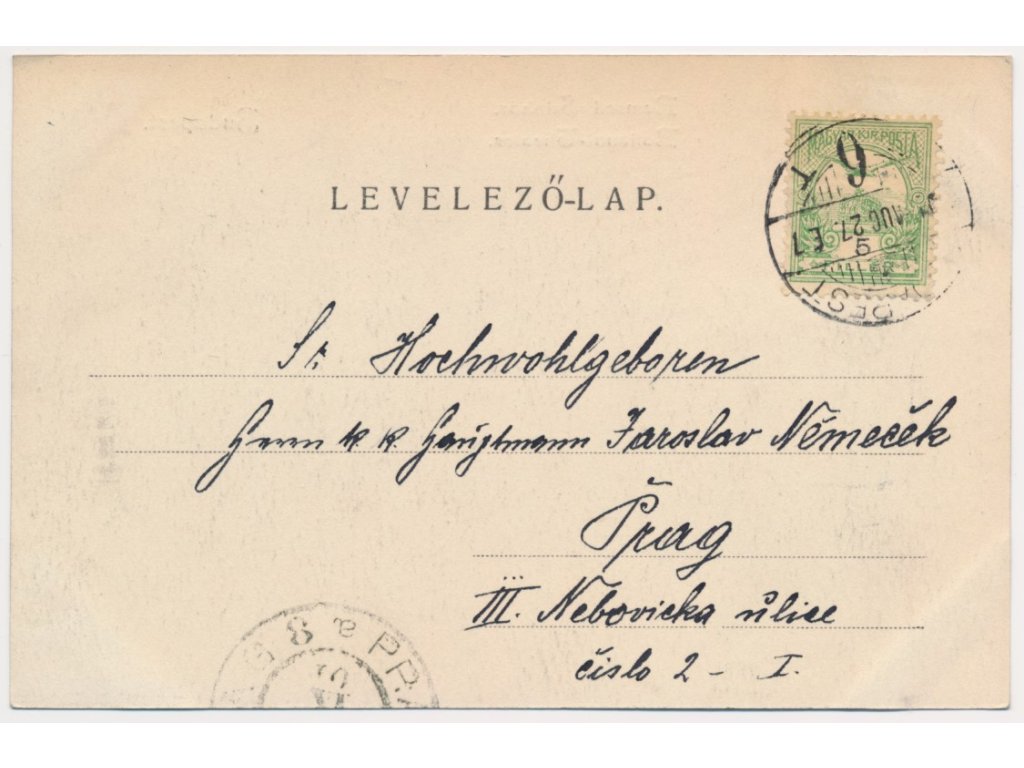 MAGYAR KIR. POSTA
LEVELEZŐ-LAP.
9
AUG 27. E1
5
PEST
Sr. Hochwohlgeboren
Herrn k k Hauptmann Jaroslav Němeček
Prag
III. Nebovicka ulice
čislo 2 - I.
8